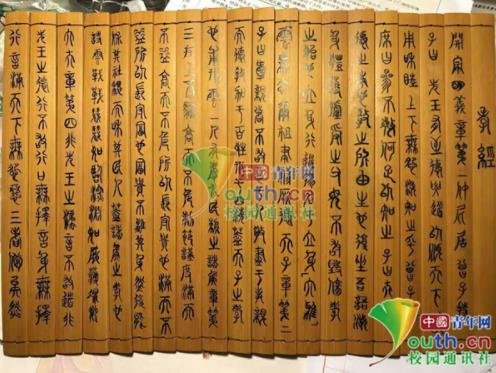 孝經
開宗明義章第一仲尼居曾子侍
子曰先王有至德要道以順天下
用和睦上下無怨汝知之乎曾子
席曰參不敏何足以知之子曰夫孝
德之本也教之所由生也復坐吾語
身體髮膚受之父母不敢毀傷孝
之始也立身行道
大雅
云無念爾祖聿脩厥德天子章第二
子曰愛親者不敢
而德教加於百姓刑于四海蓋天子之孝
也甫刑云一人有慶兆民賴之諸侯章第
三在上不驕高而不危制節謹度滿而
不溢高而不危所以長守貴也滿而不
溢所以長守富也富貴不離其身然後能
保其社稷而和其民人蓋諸侯之孝也
詩云戰戰兢兢如臨深淵如履薄冰
大夫章第四非先王之法言不敢道非
先王之德行不敢行口無擇言身無擇
行言滿天下無怨惡三者備矣然
中國青年网
youth.cn
校园通讯社
中國青年网
youth.cn
校园通讯社